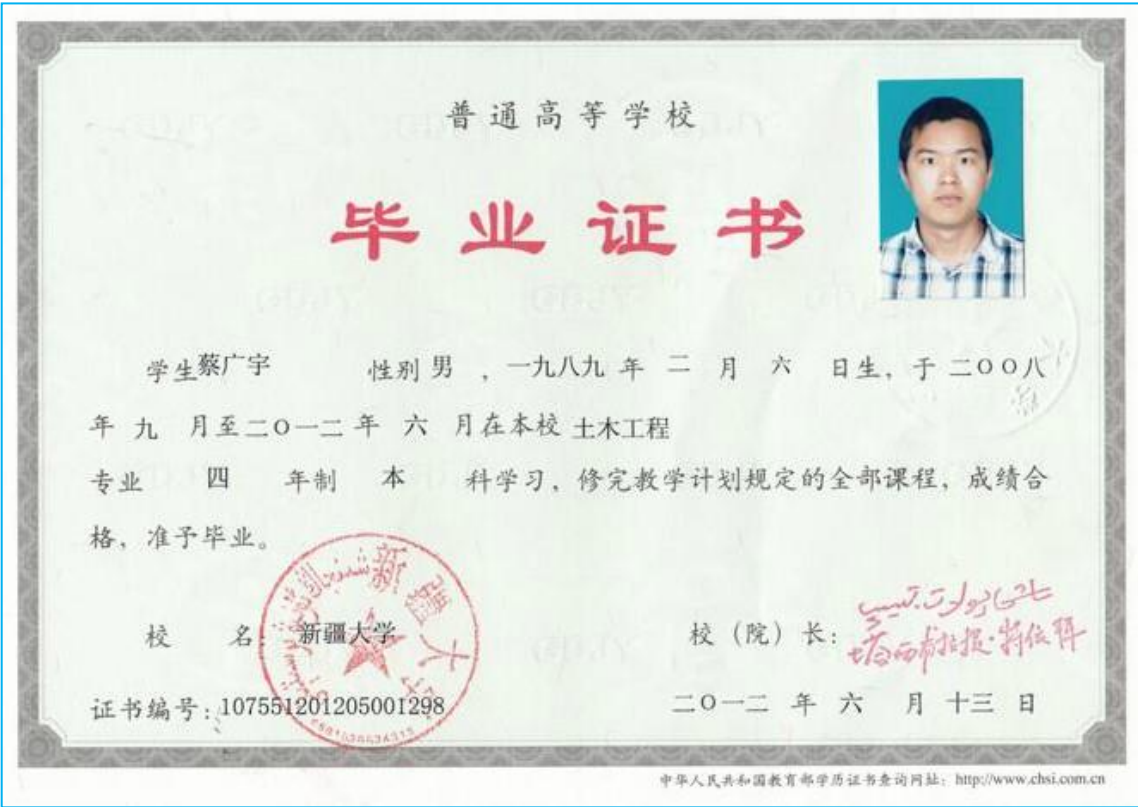 普通高等学校
毕业证书
学生蔡广宇 性别 男 ，一九八九 年 二 月 六 日生，于 二〇〇八
年 九 月至二〇一二 年 六 月在本校 土木工程
专业 四 年制 本 科学习，修完教学计划规定的全部课程，成绩合
格，准予毕业。
新疆大学
校 名：新疆大学 校（院）长：
证书编号：107551201205001298 二〇一二 年 六 月 十三 日
中华人民共和国教育部学历证书查询网址：http://www.chsi.com.cn